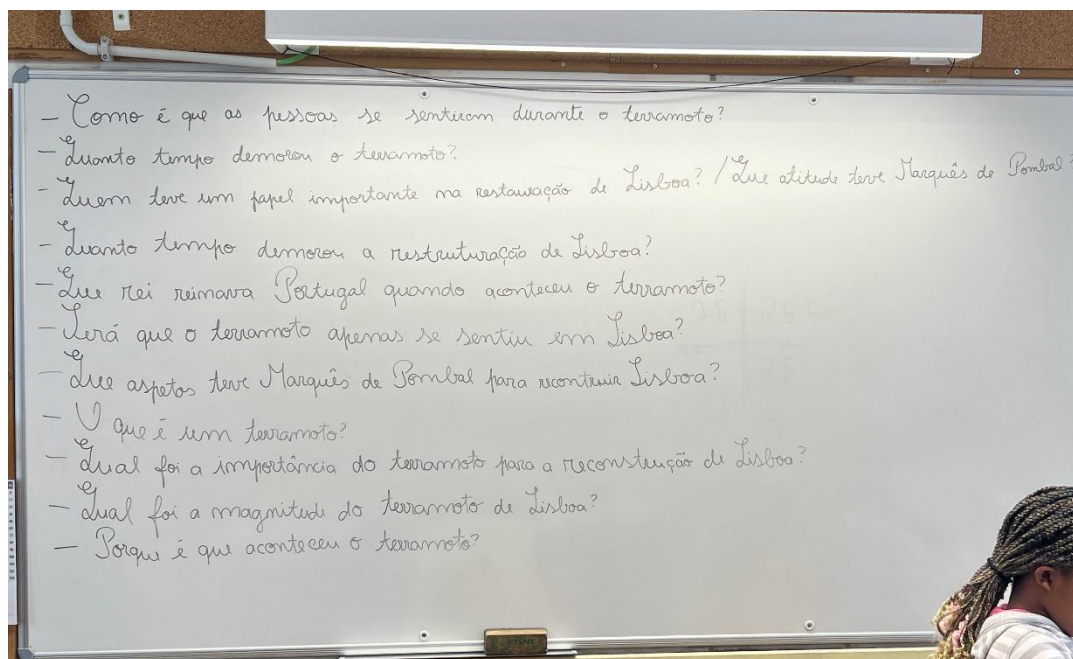 - Como é que as pessoas se sentiram durante o terramoto?
- Quanto tempo demorou o terramoto?
- Quem teve um papel importante na restauração de Lisboa? / Que atitude teve Marquês de Pombal?
- Quanto tempo demorou a restruturação de Lisboa?
- Que rei reinava Portugal quando aconteceu o terramoto?
- Será que o terramoto apenas se sentiu em Lisboa?
- Que aspetos teve Marquês de Pombal para recontruir Lisboa?
- O que é um terramoto?
- Qual foi a importância do terramoto para a reconstrução de Lisboa?
- Qual foi a magnitude do terramoto de Lisboa?
- Porque é que aconteceu o terramoto?